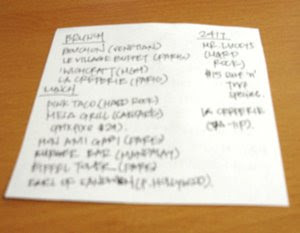 BRUNCH
BOUCHON (VENETIAN)
LE VILLAGE BUFFET (PARIS)
'WICHCRAFT (MGM)
LA CREPERIE (PARIS)
LUNCH
PINK TACO (HARD ROCK)
MESA GRILL (CAESARS)
(PRIX FIXE $24).
MON AMI GABI (PARIS)
BURGER BAR (MANDALAY)
EIFFEL TOWER (PARIS)
EARL OF SANDWICH (P. HOLLYWOOD).
24/7
MR. LUCKY'S
(HARD
ROCK)
$15 SURF 'N'
TURF
SPECIAL.
LA CREPERIE